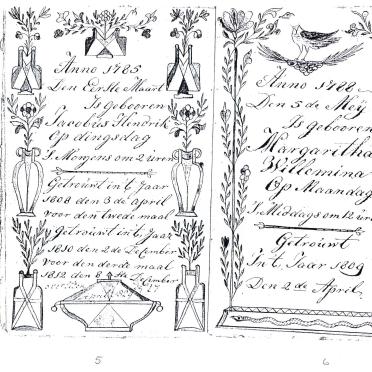 Anno 1785
Den Eerste Maart
Is gebooren
Jacobus Hendrik
Op dingsdag
S Morgens om 2 uren
Getrouwt in t Jaar
1808 den 3 de april
voor den twede maal
Getrouwt in t Jaar
1810 den 2 de December
voor den derde maal
1812 den 6 December
5
Anno 1788
Den 5 de Mey
Is gebooren
Margaritha
Willemina
Op Maandag
S Middags om 12 uren
Getrouwt
In t Jaar 1809
Den 2 de April
6